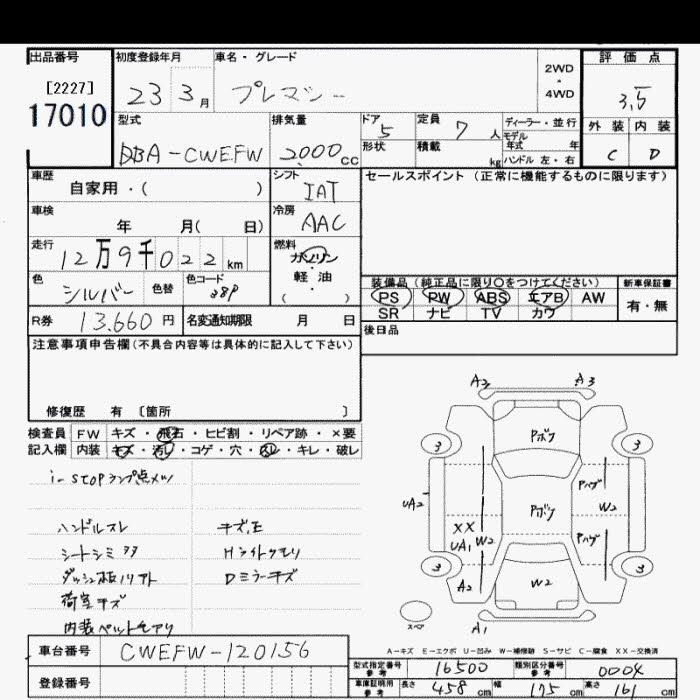 出品番号 初度登録年月 車名・グレード 2WD・4WD 評価点
[2227]
17010
23 3月 プレマシー 3.5
型式 排気量 ドア 定員 ディーラー・並行 外装 内装
DBA-CWEFW 2000cc 5 7人 モデル年式 年 C D
形状 積載 kg ハンドル 左・右
車歴 自家用・( ) シフト IAT セールスポイント(正常に機能するものに限ります)
車検 年 月( 日) 冷房 AAC
走行 12万9千022km 燃料 ガソリン・軽・油( )
色 シルバー 色替 色コード 38P
装備品(純正品に限り○をつけてください) 新車保証書
PS PW ABS エアB AW 有・無
SR ナビ TV カワ
R券 13,660円 名変通知期限 月 日 後日品
注意事項申告欄(不具合内容等は具体的に記入して下さい)
修復歴 有〔箇所 〕
検査員 FW キズ・飛石・ヒビ割・リペア跡・×要
記入欄 内装 キズ・汚れ・コゲ・穴・スレ・キレ・破レ
i-stopランプ点メツ
ハンドルスレ キズ、E
シートシミ
Hライトクモリ
Dミラーキズ
荷室キズ
内装ペット毛アリ
A2 A3
3 Pボク 3
Pハゲ
UA2 Pボク W2
XX
UA1 W2 Pハゲ
3 3
A2 W2
スペ A1
A-キズ E-エクボ U-凹み W-補修跡 S-サビ C-腐食 XX-交換済
車台番号 CWEFW-120156
型式指定番号 参考 16500 類別区分番号 参考 0004
登録番号
車庫証明用 参考 長さ 458cm 幅 175cm 高さ 161cm